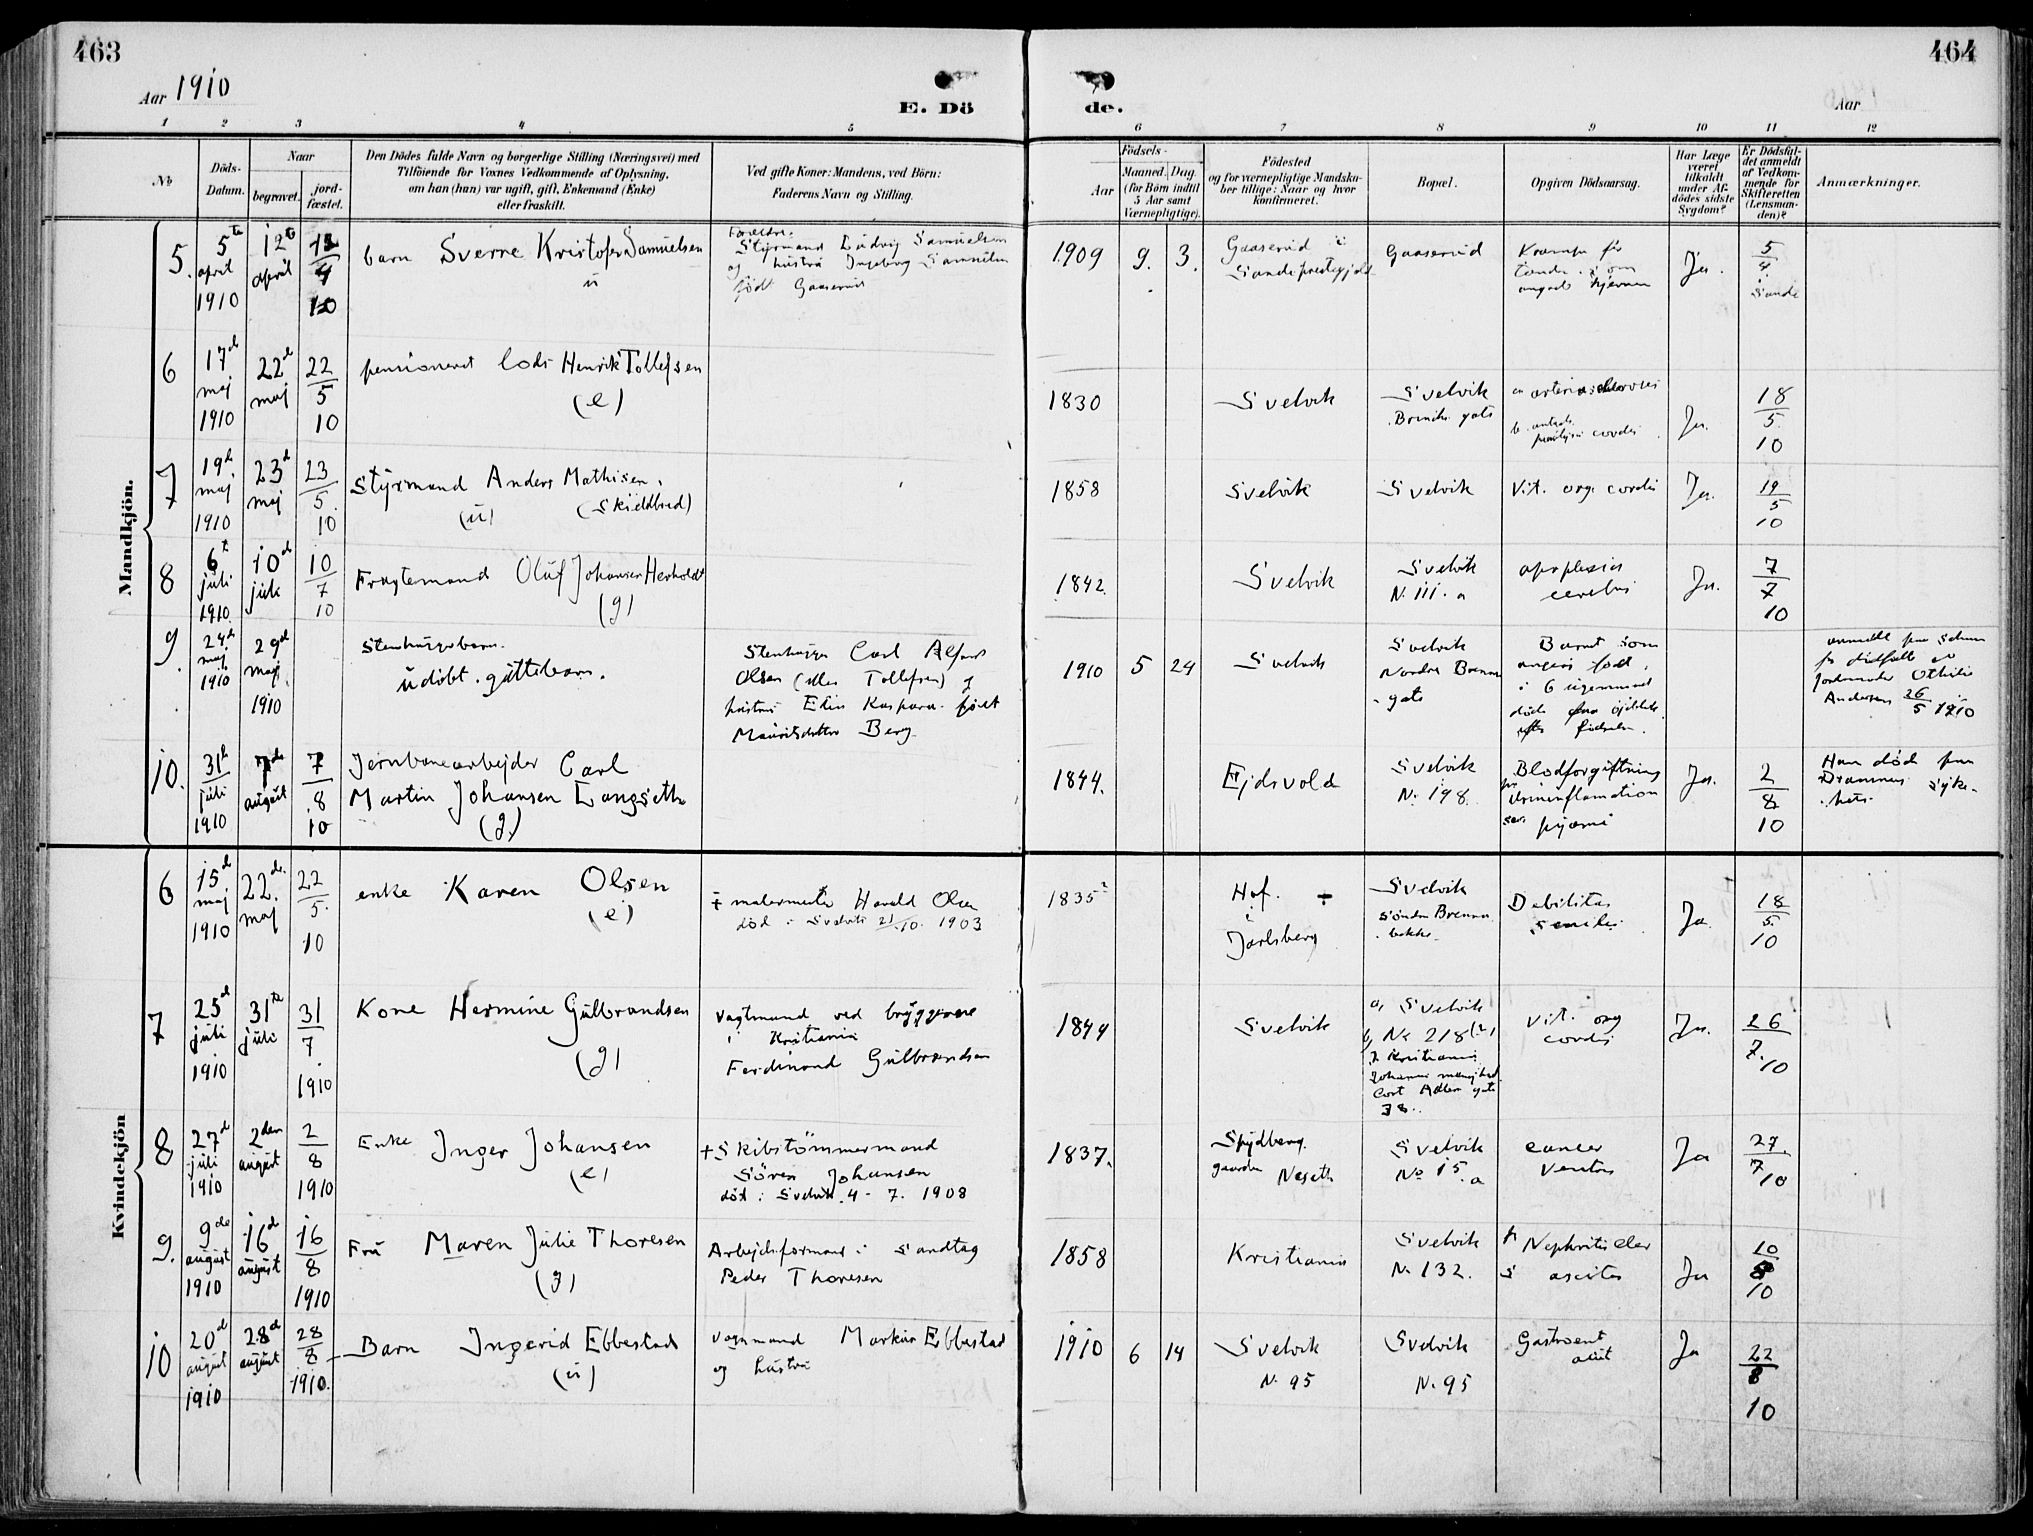 463
464
Aar 1910
E. Dö
de.
Aar
1 2 3 4 5 6 7 8 9 10 11 12
No
Döds-Datum.
Naar
begravet.
jord-fæstet.
Den Dödes fulde Navn og borgerlige Stilling (Næringsvei) med
Tilföiende for Voxnes Vedkommende af Oplysning,
om han (hun) var ugift, gift, Enkemand (Enke)
eller fraskilt.
Ved gifte Koner: Mandens, ved Börn:
Faderens Navn og Stilling.
Födsels-
Aar
Maaned. Dag.
(for Börn indtil
5 Aar samt
Værnepligtige).
Födested
og for værnepligtige Mandska-
ber tillige: Naar og hvor
konfirmeret.
Bopæl.
Opgiven Dödsaarsag.
Har Læge
været
tilkaldt
under Af-
dödes sidste
Sygdom?
Er Dödsfal-
det anmeldt
af Vedkom-
mende for
Skifteretten
(Lensman-
den)?
Anmærkninger.
Mandkjön.
5. 5te april 1910
12te april
12/4 10
barn Sverre Kristofer Samuelsen
u
Forældre:
Styrmand Ludvig Samuelsen
og hustru Ingeborg Samuelsen
født Gaaserud
1909 9. 3.
Gaaserud i
Sande prestegjeld
Gaaserud
Ja.
5/4
Sande
6 17de maj 1910
22de maj
22/5 10
pensioneret lods Henrik Tollefsen
(e)
1830
Svelvik
Svelvik
gate
cordis
Ja.
18/5 10
7 19de maj 1910
23de maj
23/5. 10
Styrmand Anders Mathisen.
(u)
1858
Svelvik
Svelvik
Vit. org. cordis
Ja.
19/5 10
8 6te juli 1910
10de juli
10/7 10
Fragtemand Oluf Johansen Herholdt
(g)
1842.
Svelvik
Svelvik
N. 111. a
apoplexia
cerebri
Ja.
7/7 10
9. 24de maj 1910
29de maj 1910
Stenhuggerbarn.
udøbt guttebarn.
Stenhugger Carl Alfred
Olsen (eller Tollefsen) og
hustru Elin Kaspara født
Mauritsdatter Berg
1910 5 24
Svelvik
Svelvik
Nordre Brenna
gate
Barnet som
angives født
i 6 ugemaaned
døde
efter fødselen.
Jordmoder Othilie
Andersen 26/5 1910
10. 31te juli 1910
7de august
7/8 10
Jernbanearbejder Carl
Martin Johansen Langseth
(g.)
1844.
Ejdsvold
Svelvik
No. 198.
Blodforgiftning
Urininflamation
pyæmi
Ja.
2/8 10
Han død paa
Drammens Syke-
hus.
Kvindekjön
6 15de maj 1910
22de. maj
22/5. 10
enke Karen Olsen
(e)
malermester Harald Olsen
død i Svelvik 21/10. 1903
1835
Hof.
i
Jarlsberg
Svelvik
Søndre Brenna
bakke
Debilitas
senilis
Ja.
18/5. 10
7 25de juli 1910
31te juli
31/7 1910
Kone Hermine Gulbrandsen
(g)
Vagtmand ved bryggerne
i Kristiania
Ferdinand Gulbrandsen
1844
Svelvik
a, Svelvik
b, No 218
Kristiania
Cort Adlers gate
38.
Vit. org
cordis
Ja.
26/7. 10
8 27de juli 1910
2den august
2/8 1910
Enke Inger Johansen
(e)
+ Skibstömmermand
Sören Johansen
död i Svelvik 4 - 7. 1908
1837.
Spydberg.
gaarden Neseth
Svelvik
No 15. a
cancer
ventris
Ja
27/7 10
9. 9de august 1910
16de august
16/8 1910
Fru Maren Julie Thoresen
(g)
Arbejdsformand i Sandtag
Peder Thoresen
1858
Kristiania
Svelvik
N. 132.
Nephritis
ascites
Ja
10/8 10
10 20de august 1910
28de august
28/8 1910.
Barn Ingerid Ebbestad
(u)
Vognmand Markus Ebbestad
og hustru
1910 6 14
Svelvik
N. 95
Svelvik
N. 95
Gastroent
acut
Ja
22/8 10